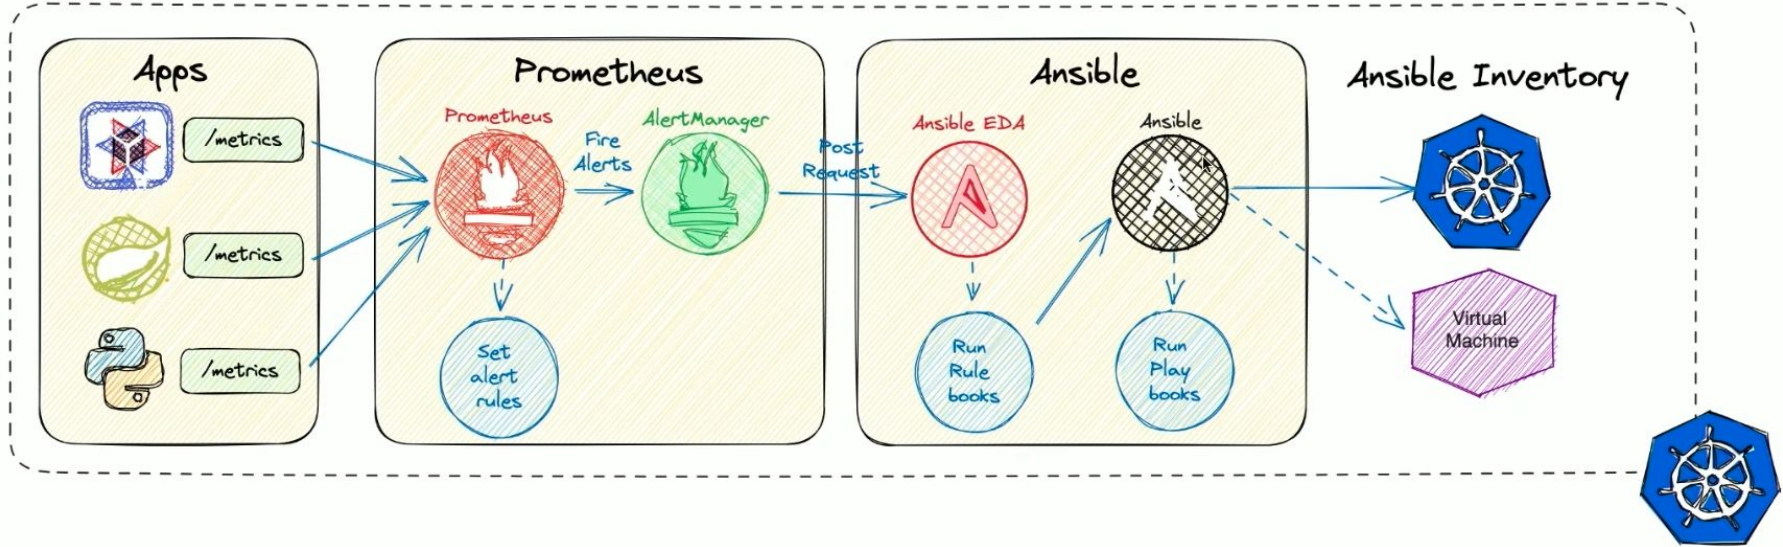 Apps
/metrics
/metrics
/metrics
Prometheus
Prometheus
Fire
Alerts
AlertManager
Set
alert
rules
Post
Request
Ansible
Ansible EDA
Ansible
Run
Rule
books
Run
Play
books
Ansible Inventory
Virtual
Machine